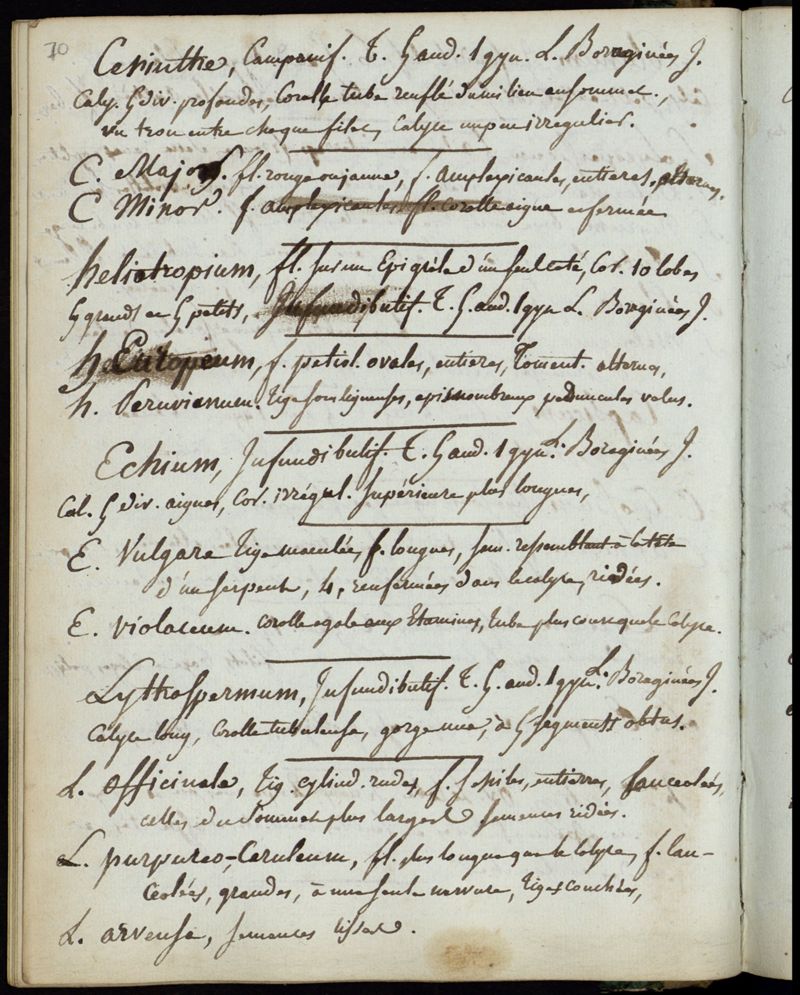 70
Cerinthe, Campanif. T. 5 and. 1 gyn. L. Boraginées J.
Caly. 5 div. profondes, Corolle tube renflé du milieu au sommet.,
un trou entre chaque filet, Calyce un peu irregulier.
C. Major. fl. rouge ou jaune, f. amplexicaules, entieres, alternes.
C Minor. f. amplexicaules fl. corolle aigue et fermée
heliotropium, fl. sur un Epi grêle d'un seul coté, Cor. 10 lobes
5 grands et 5 petits, Infundibulif. T. 5. and. 1 gyn L. Boraginées J.
h. Europeum, f. petiol. ovales, entieres, Toment. alternes,
h. Peruvianum. tige sous ligneuse, epis nombreux peduncules velus.
Echium, Infundibulif. T. 5 and. 1 gyn. L. Boraginées J.
Cal. 5 div. aigues, Cor. irrégul. supérieure plus longues,
E. Vulgare tige maculée, f. longues, sem. ressemblant à la tête
d'un serpent, 4, renfermées dans le calyce, ridées.
E. violaceum. Corolle egale aux Etamines, tube plus court que le Calyce.
Lythospermum, Infundibulif. T. 5. and. 1 gyn. L. Boraginées J.
Calyce long, Corolle tubuleuse, gorge nue, à 5 segments obtus.
L. officinale, tig. cylind. rudes, f. sessiles, entières, lanceolées,
celles du sommet plus larges semences ridées.
L. purpureo-Ceruleum, fl. plus longue que le Calyce, f. lan-
ceolées, grandes, à une seule nervure, tiges couchées,
L. arvense, semences lisses.